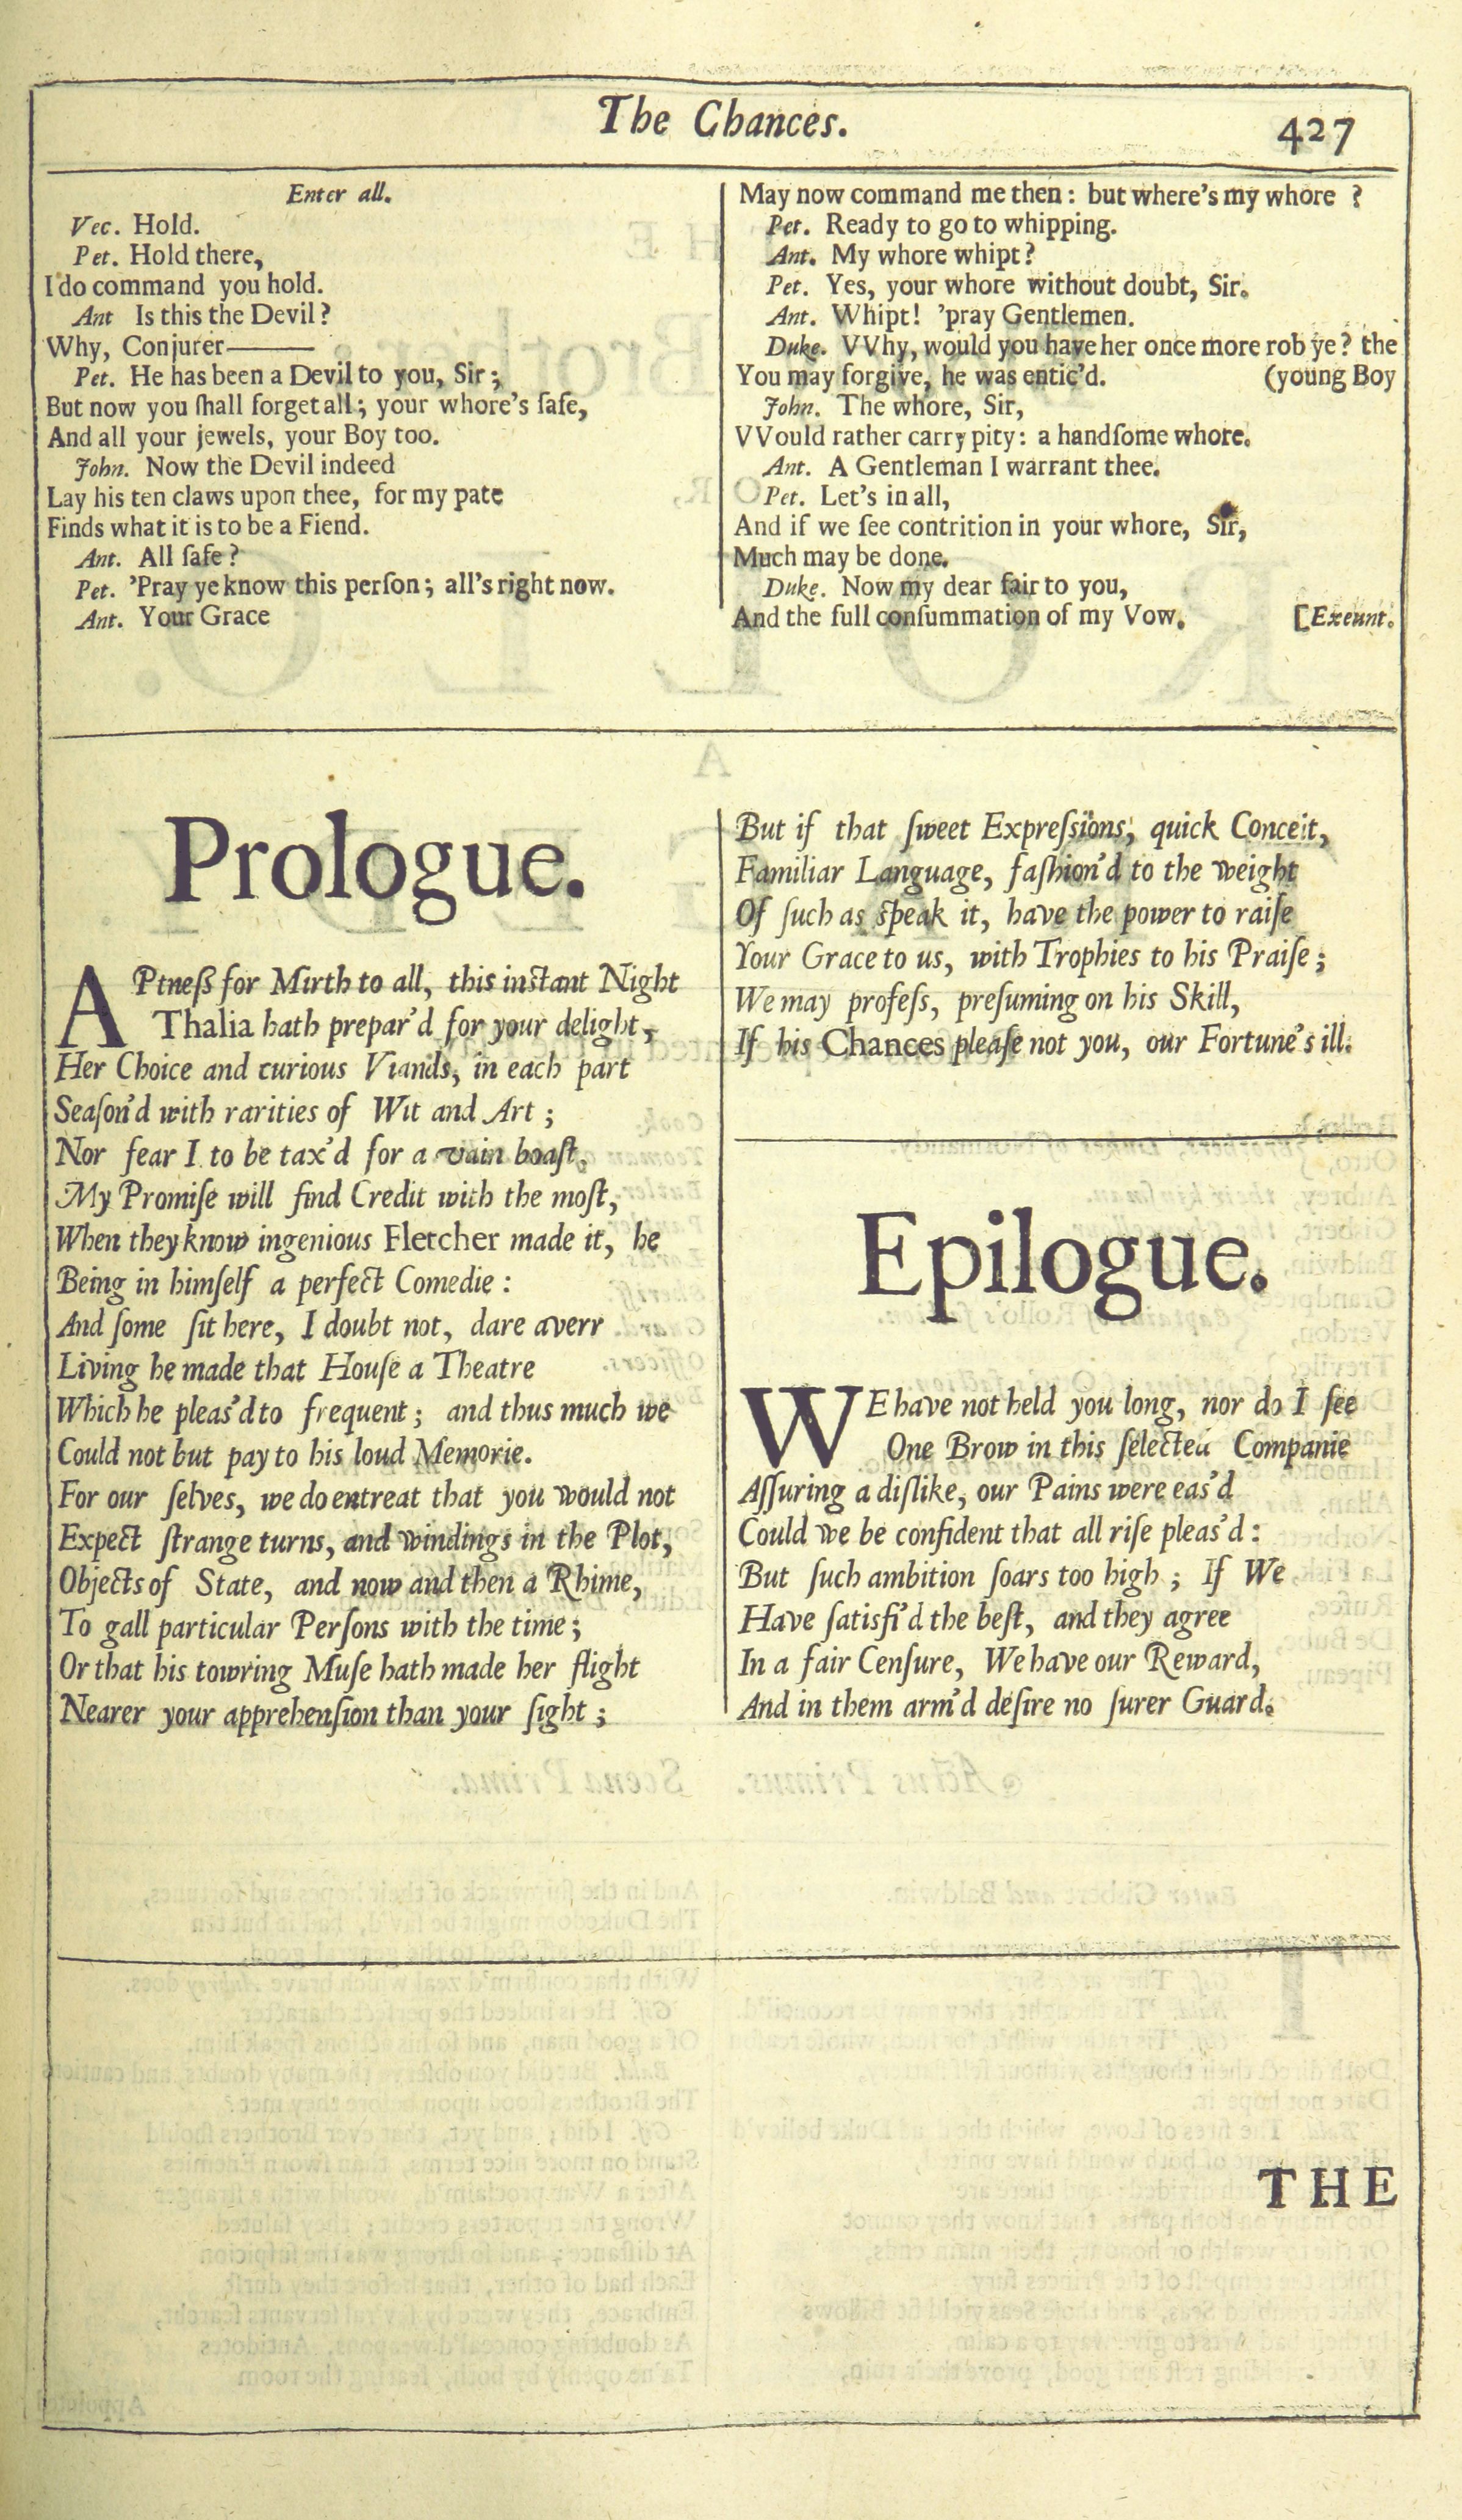 The Chances. 427
Enter all.
Vec. Hold.
Pet. Hold there,
I do command you hold.
Ant Is this the Devil?
Why, Conjurer———
Pet. He has been a Devil to you, Sir;
But now you ſhall forget all; your whore's ſafe,
And all your jewels, your Boy too.
John. Now the Devil indeed
Lay his ten claws upon thee, for my pate
Finds what it is to be a Fiend.
Ant. All ſafe?
Pet. 'Pray ye know this perſon; all's right now.
Ant. Your Grace
May now command me then: but where's my whore ?
Pet. Ready to go to whipping.
Ant. My whore whipt?
Pet. Yes, your whore without doubt, Sir.
Ant. Whipt! 'pray Gentlemen.
Duke. VVhy, would you have her once more rob ye? the
You may forgive, he was entic'd. (young Boy
John. The whore, Sir,
VVould rather carry pity: a handſome whore.
Ant. A Gentleman I warrant thee.
Pet. Let's in all,
And if we ſee contrition in your whore, Sir,
Much may be done.
Duke. Now my dear fair to you,
And the full conſummation of my Vow. [Exeunt.
Prologue.
APtneſs for Mirth to all, this inſtant Night
Thalia hath prepar'd for your delight,
Her Choice and curious Viands, in each part
Seaſon'd with rarities of Wit and Art;
Nor fear I to be tax'd for a vain boaſt,
My Promiſe will find Credit with the moſt,
When they know ingenious Fletcher made it, he
Being in himſelf a perfect Comedie:
And ſome ſit here, I doubt not, dare averr
Living he made that Houſe a Theatre
Which he pleas'd to frequent; and thus much we
Could not but pay to his loud Memorie.
For our ſelves, we do entreat that you would not
Expect ſtrange turns, and windings in the Plot,
Objects of State, and now and then a Rhime,
To gall particular Perſons with the time;
Or that his towring Muſe hath made her flight
Nearer your apprehenſion than your ſight;
But if that ſweet Expreſsions, quick Conceit,
Familiar Language, faſhion'd to the weight
Of ſuch as ſpeak it, have the power to raiſe
Your Grace to us, with Trophies to his Praiſe;
We may profeſs, preſuming on his Skill,
If his Chances pleaſe not you, our Fortune's ill.
Epilogue.
WE have not held you long, nor do I ſee
One Brow in this ſelected Companie
Aſſuring a diſlike, our Pains were eas'd
Could we be confident that all riſe pleas'd:
But ſuch ambition ſoars too high; If We
Have ſatisfi'd the beſt, and they agree
In a fair Cenſure, We have our Reward,
And in them arm'd deſire no ſurer Guard.
THE